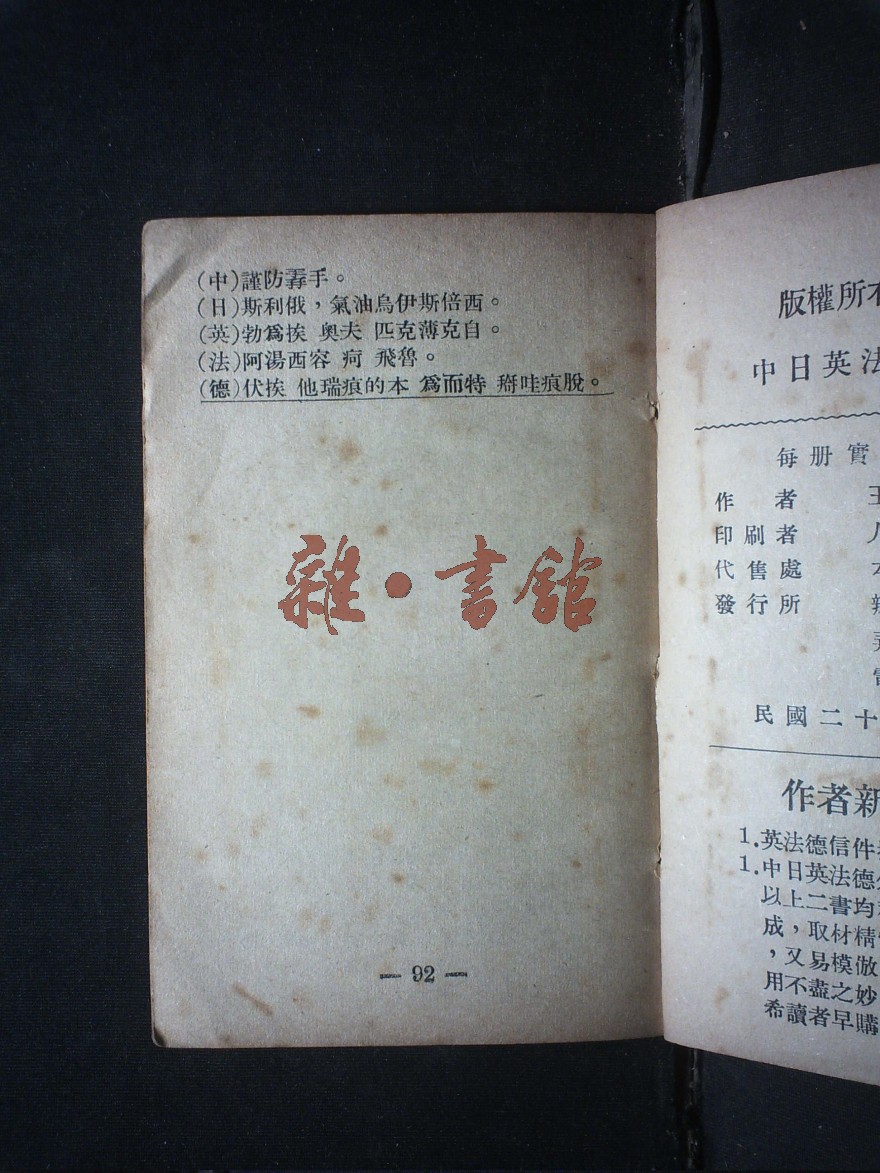 (中)謹防扒手。
(日)斯利俄，氣油烏伊斯倍西。
(英)勃爲挨 奧夫 匹克薄克自。
(法)阿湯西容 疴 飛魯。
(德)伏挨 他瑞痕的本 爲而特 搿哇痕脫。
雜·書館
— 92 —
版權所
中日英法
每册實
作者
印刷者
代售處
發行所
民國二十
作者新
1.英法德信件
1.中日英法德
以上二書均
成，取材精
，又易模倣
用不盡之妙
希讀者早購